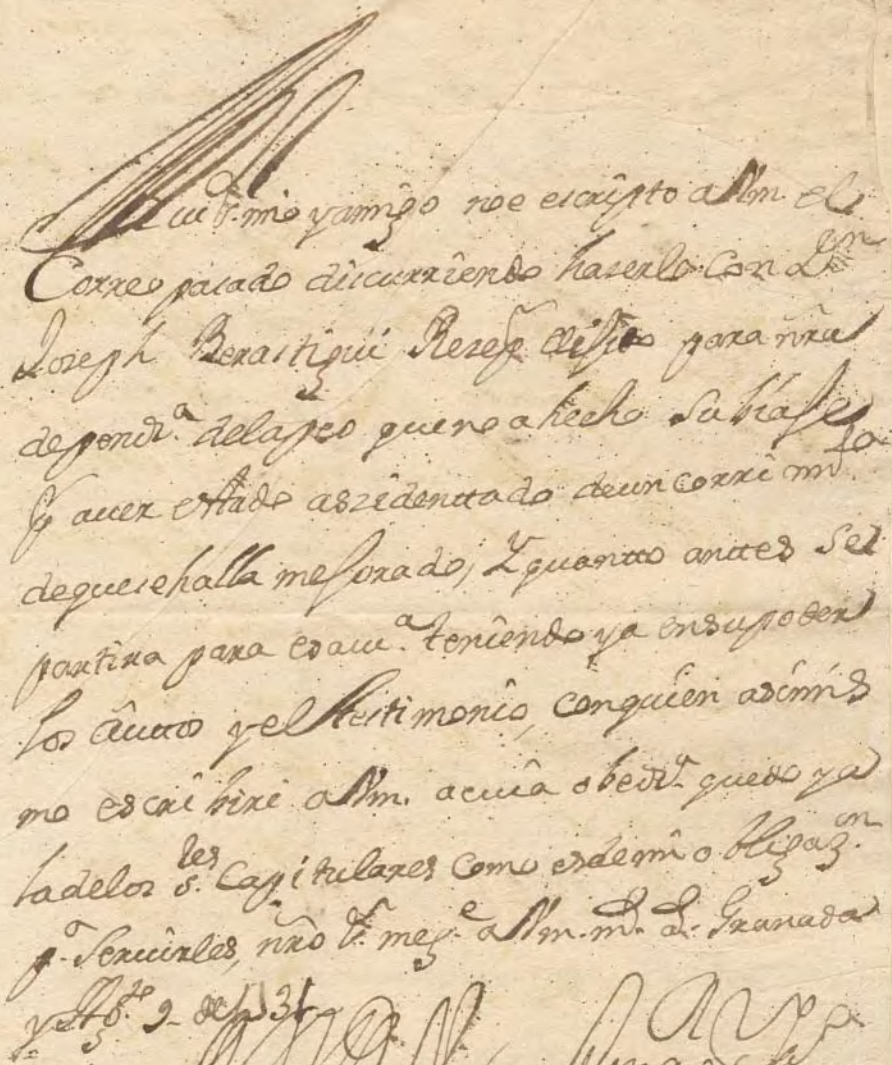 mui Sr. mio y amigo no e escripto a Vm. el
Correo pasado discurriendo haserlo con Dn
Joseph Berastigui Rezep. para nra
depend.a delapeo que no a hecho su biaje
Y aver estado aszidenttado de un corrimto.
de que se halla mejorado, Y quantto anttes se
partira para esa ciu.a teniendo ya en su poder
los auttos y el testimonio, con quien asimis
mo escribire a Vm. a cuia obed.a quedo y a
la de los Sres. Capitulares como es de mi obligaz.on
p.a Servirles, nro Sr. me g.e a Vm. m.s a.s Granada
y Ag.to 9 de